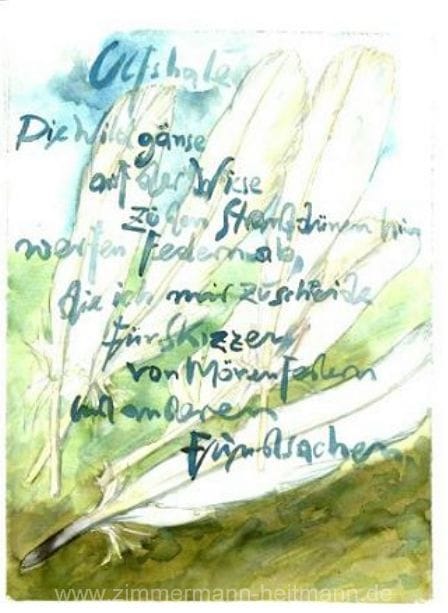 Ulfshale
Die Wildgänse
auf der Wiese
zu den Stranddünen hin
werfen Federn ab,
die ich mir zuschneide
für Skizzen
von Mövenfedern
und anderen
Fundsachen
www.zimmermann-heitmann.de